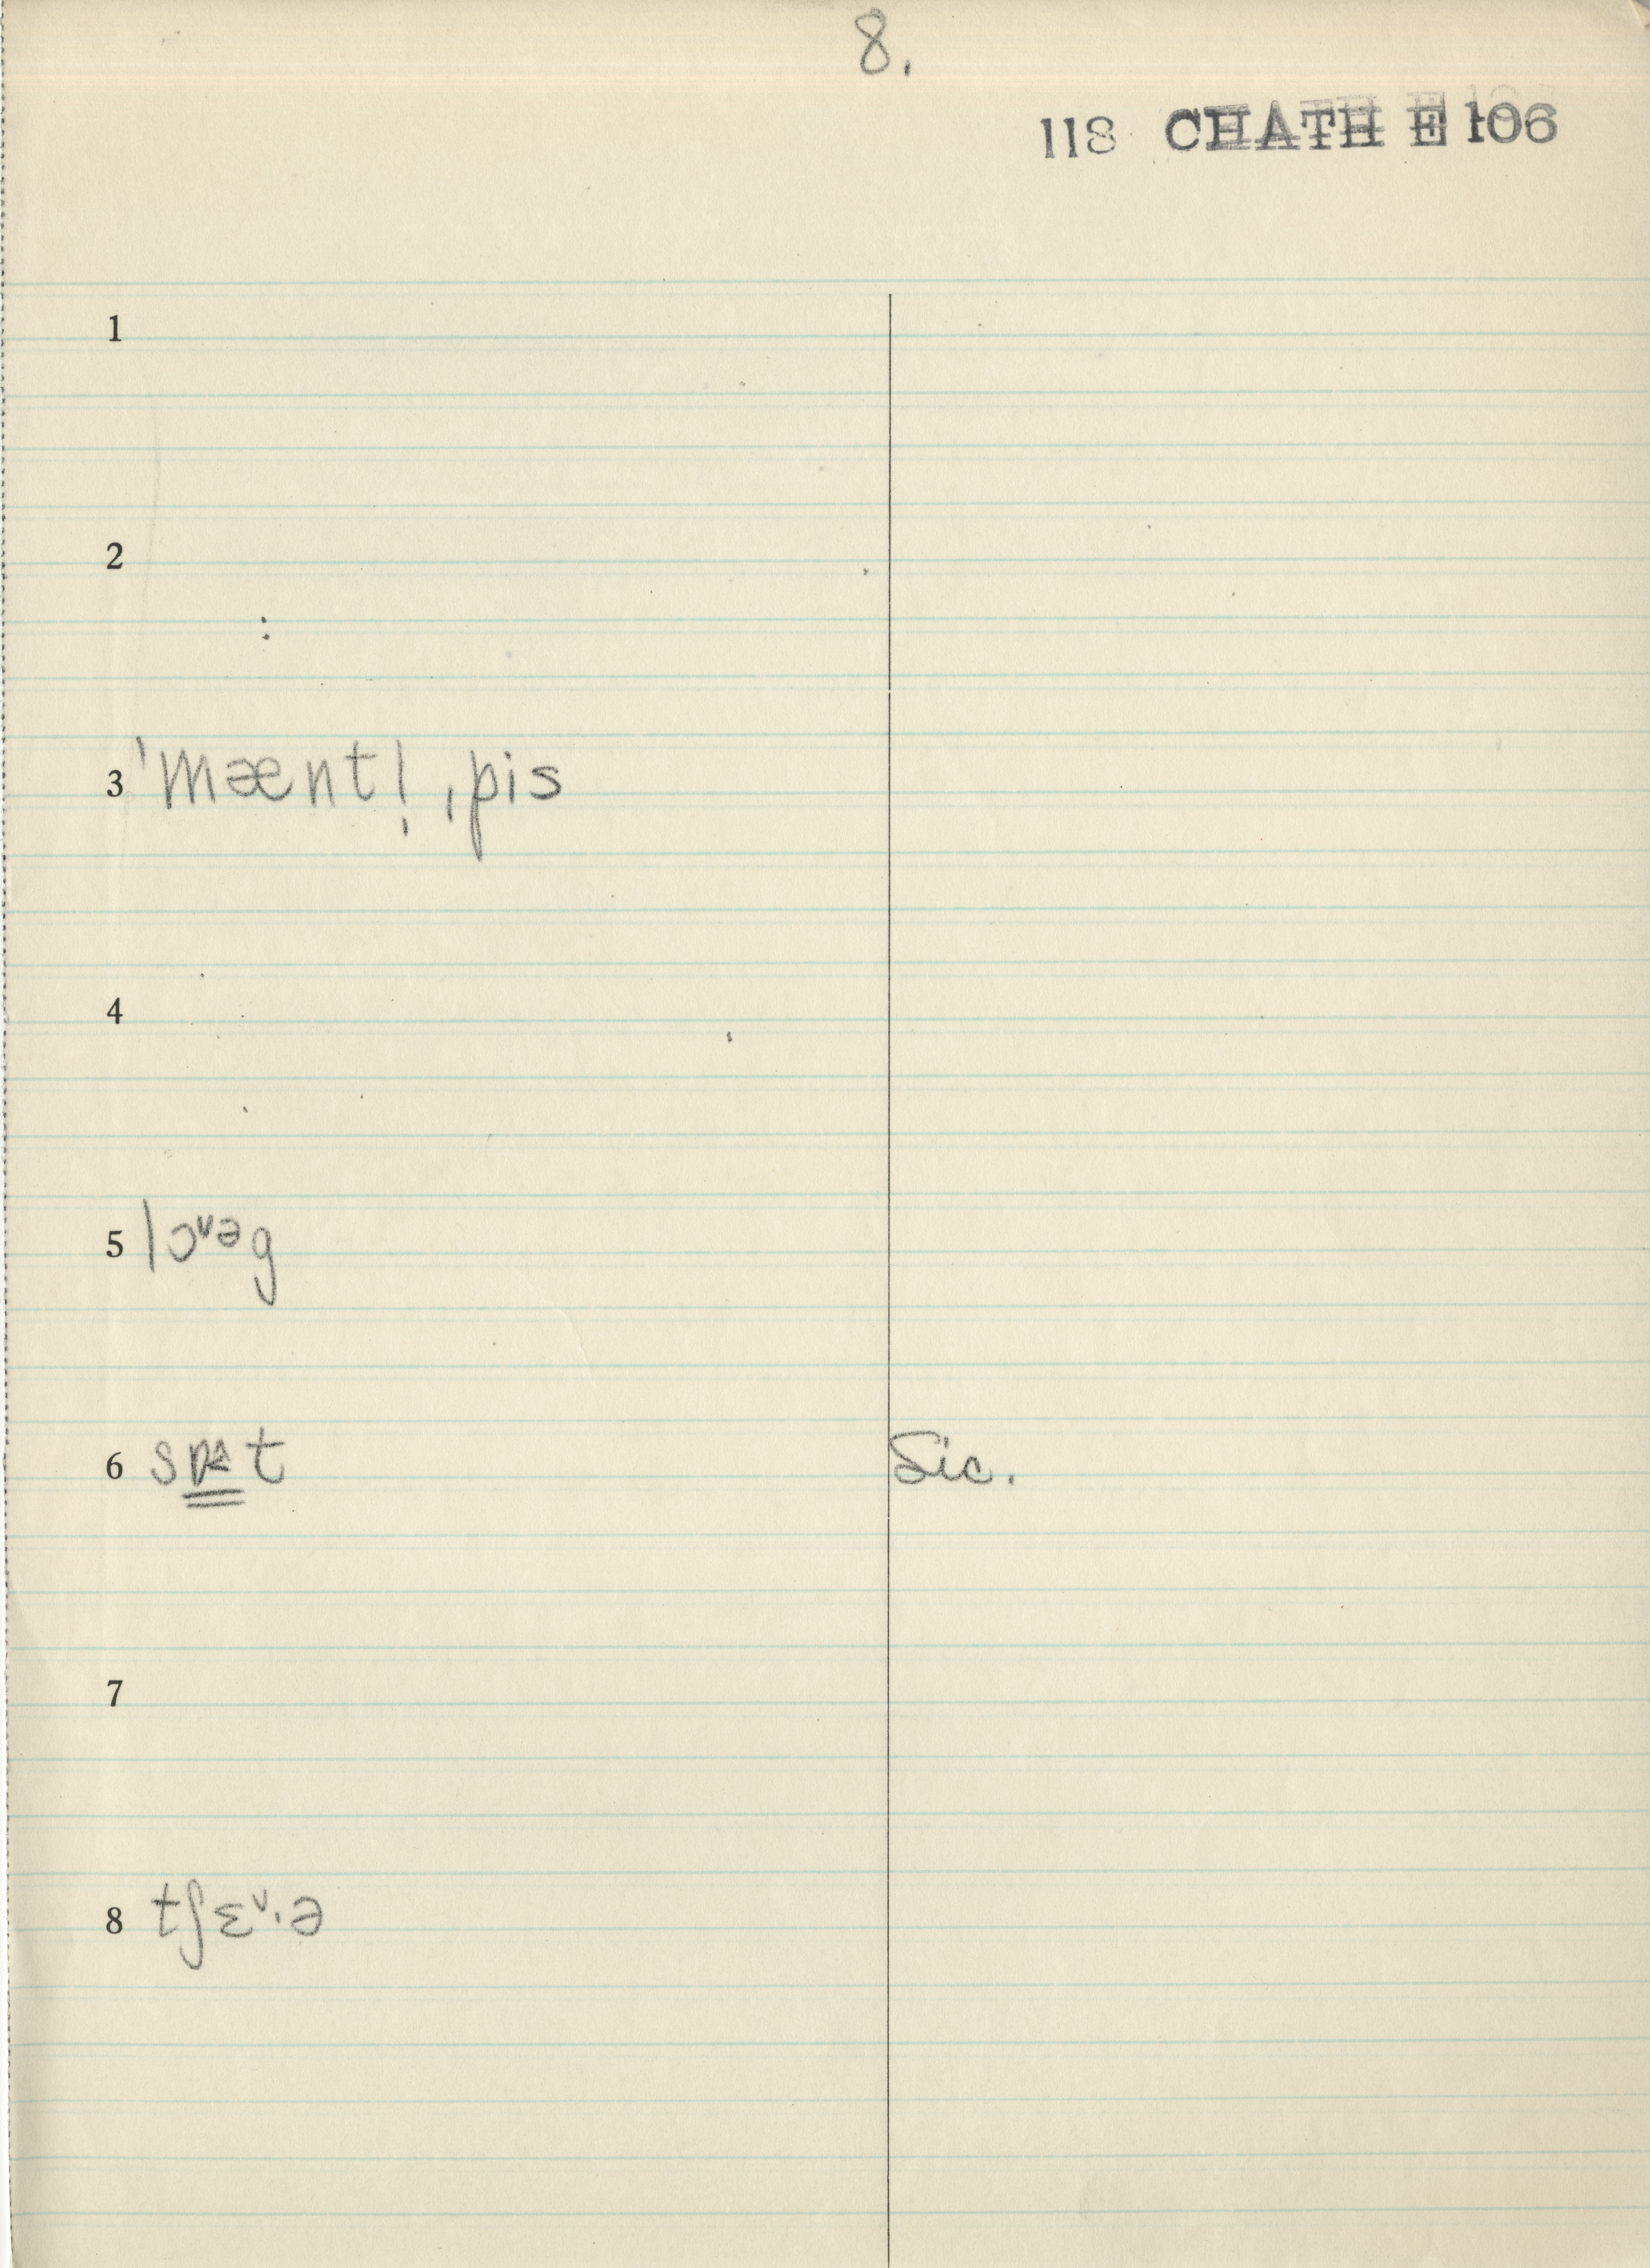 8.
118 CHATH E 106
1
2
3 ˈmæntl̩ˌpis
4
5 lɔᵛəg
6 sɒt Sic.
7
8 tʃɛᵛ·ə